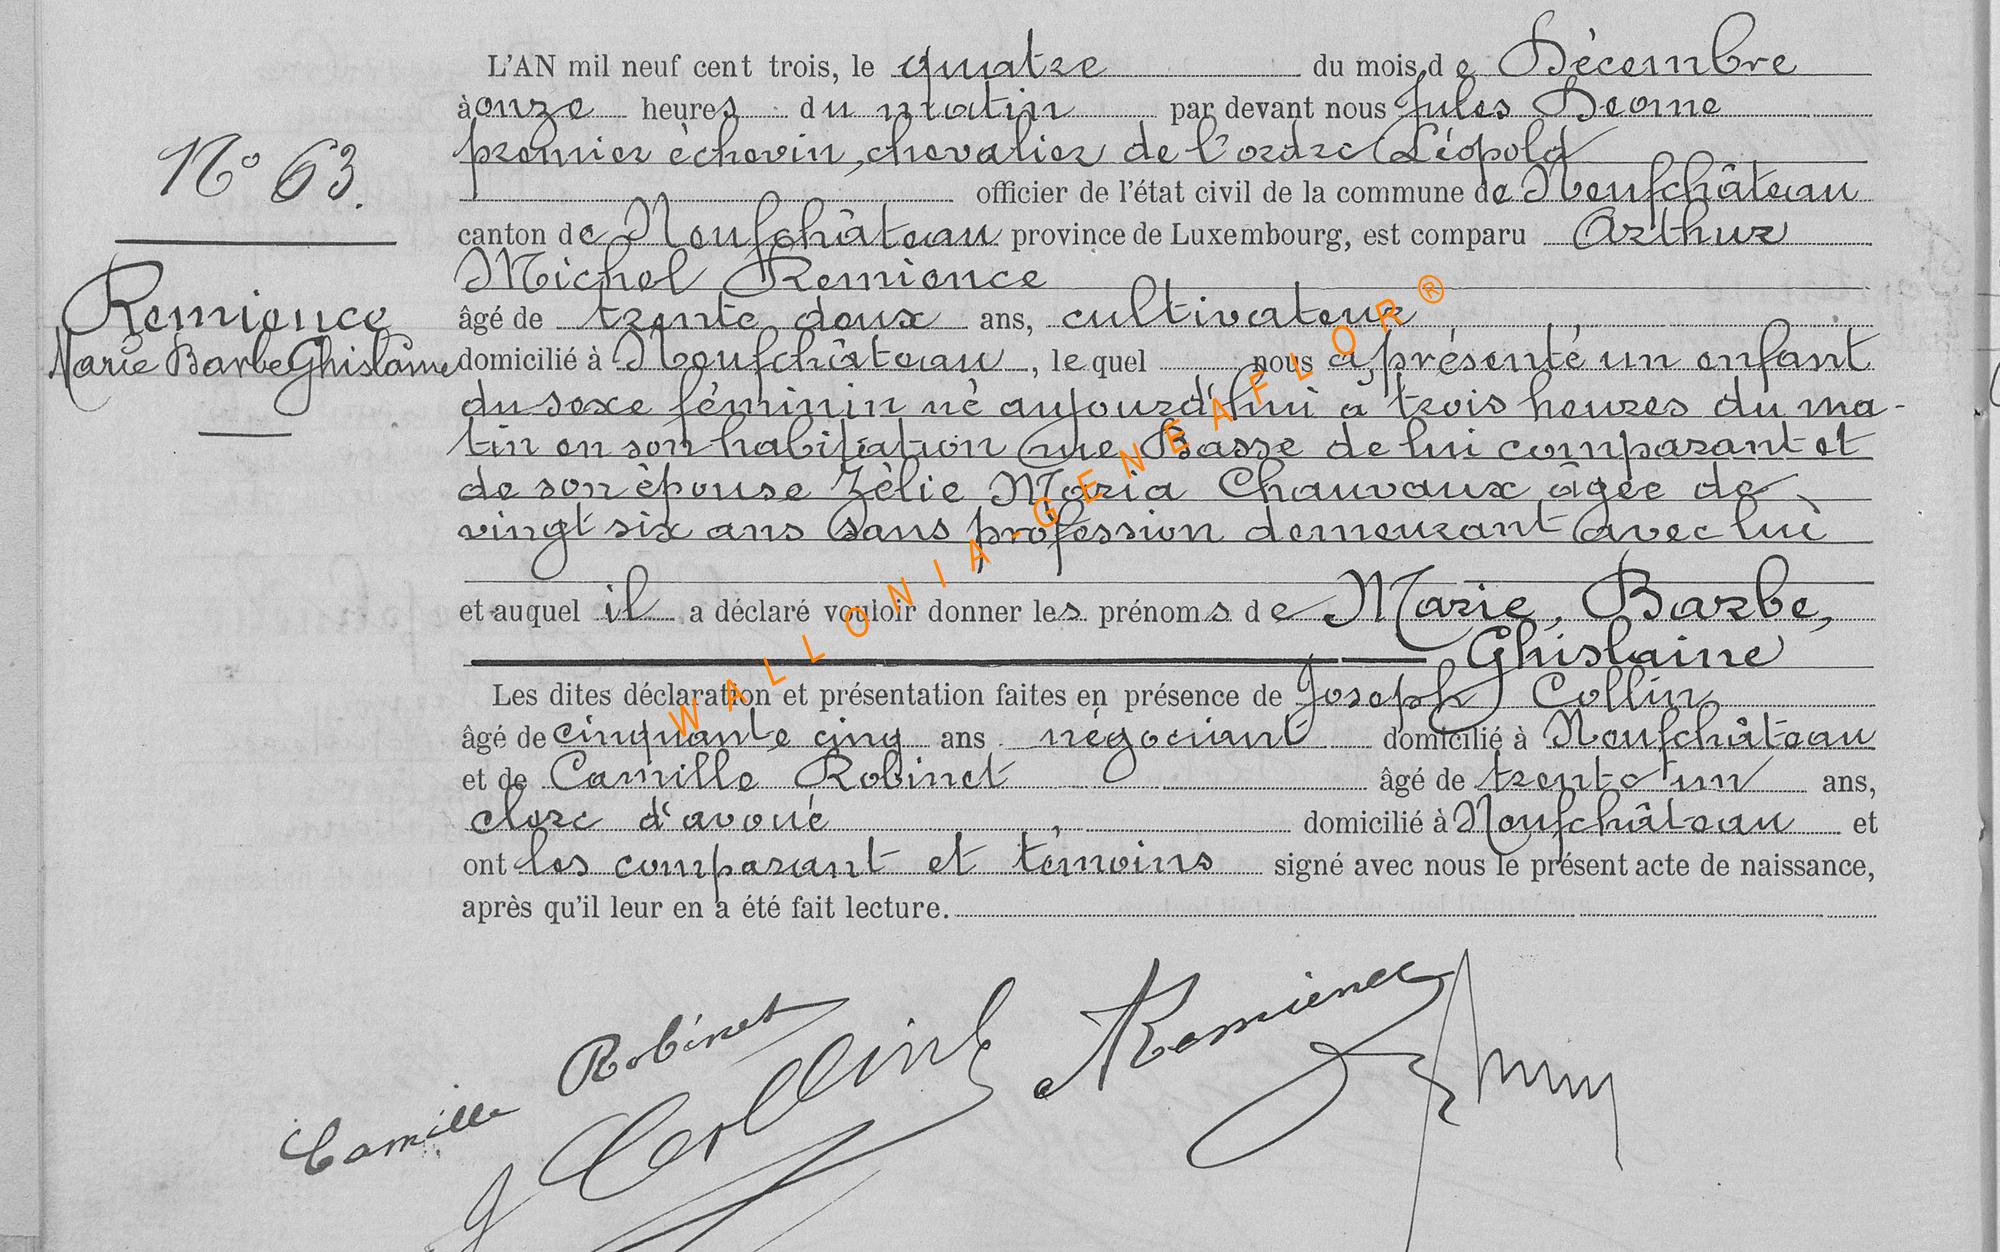 L'AN mil neuf cent trois, le quatre du mois de Décembre
à onze heures du matin par devant nous Jules Deome
premier échevin, chevalier de l'ordre Léopold
officier de l'état civil de la commune de Neufchâteau
canton de Neufchâteau province de Luxembourg, est comparu Arthur
Michel Remience
âgé de trente deux ans, cultivateur
domicilié à Neufchâteau, lequel nous a présenté un enfant
du sexe féminin né aujourd'hui à trois heures du ma-
tin en son habitation rue Basse de lui comparant et
de son épouse Zélie Maria Chauvaux âgée de
vingt six ans sans profession demeurant avec lui
et auquel il a déclaré vouloir donner les prénoms de Marie, Barbe,
Ghislaine
Les dites déclaration et présentation faites en présence de Joseph Collin
âgé de cinquante cinq ans négociant domicilié à Neufchâteau
et de Camille Robinet âgé de trente un ans,
clerc d'avoué domicilié à Neufchâteau et
ont les comparant et témoins signé avec nous le présent acte de naissance,
après qu'il leur en a été fait lecture.
N° 63.
Remience
Marie Barbe Ghislaine
WALLONIA-GENEAFLOR®
Camille Robinet
J Collin
A Remience